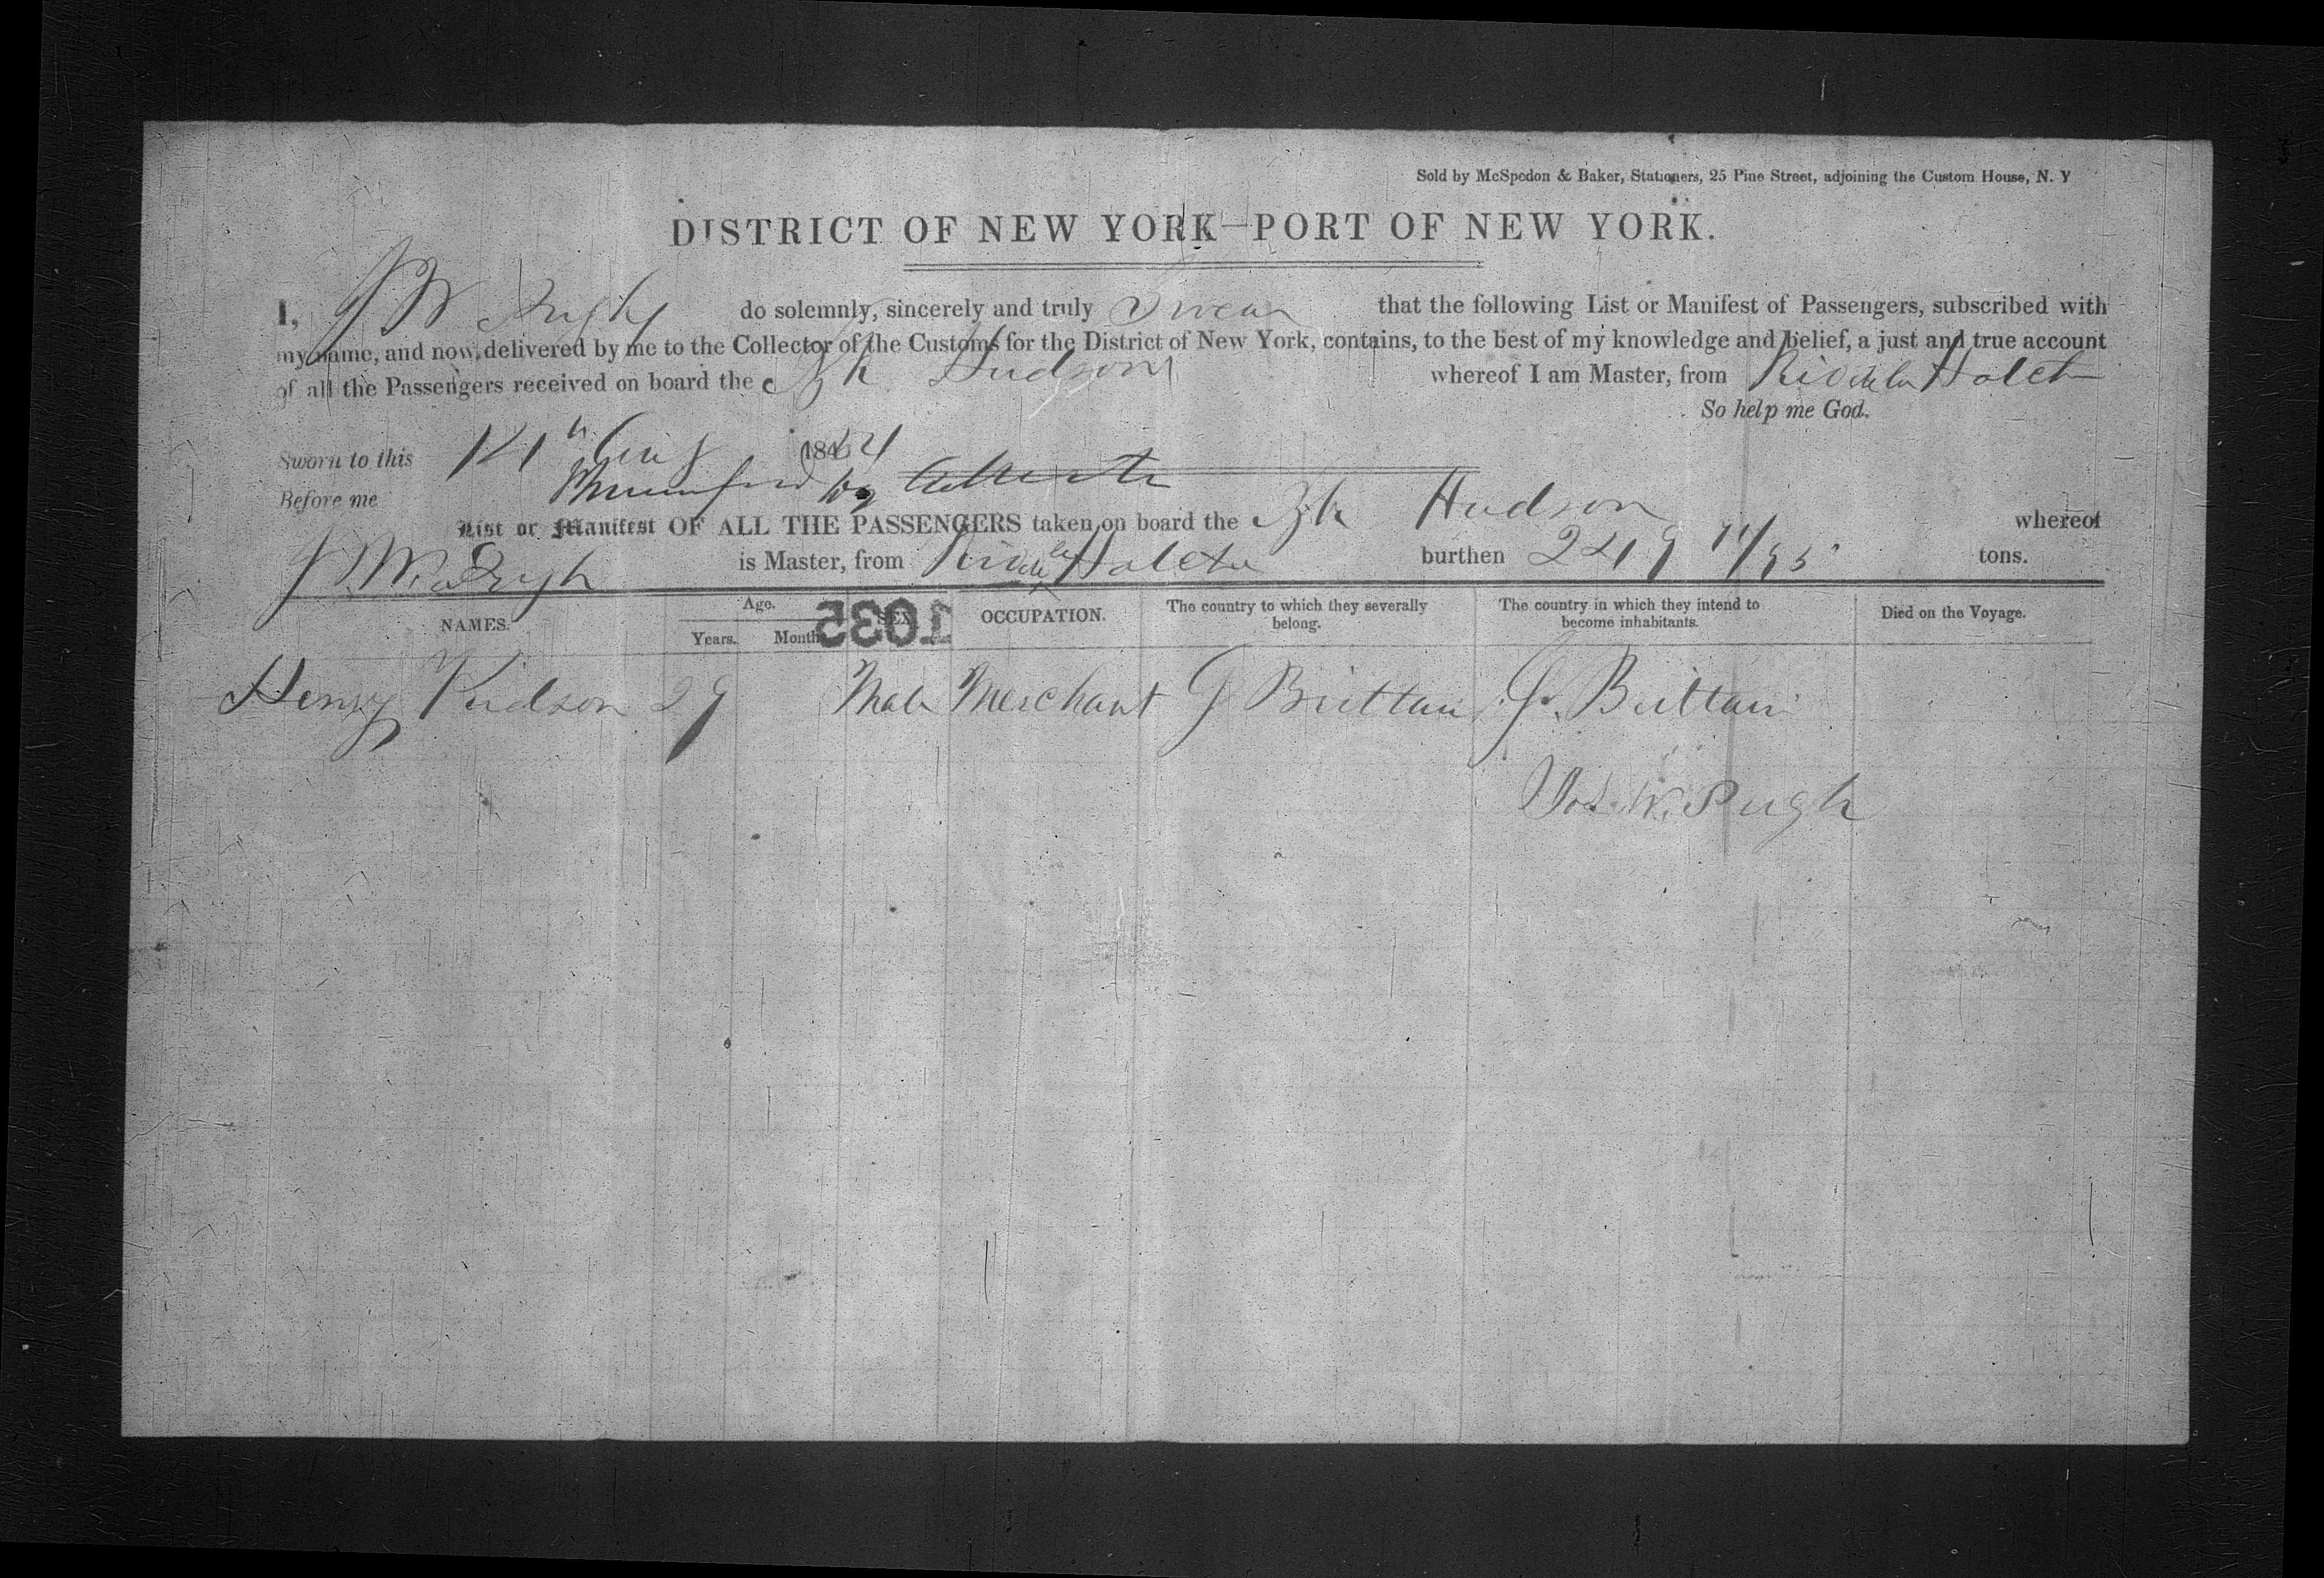 Sold by McSpedon & Baker, Stationers, 25 Pine Street, adjoining the Custom House, N. Y
DISTRICT OF NEW YORK—PORT OF NEW YORK.
I, J W Pugh do solemnly, sincerely and truly Swear that the following List or Manifest of Passengers, subscribed with
my name, and now delivered by me to the Collector of the Customs for the District of New York, contains, to the best of my knowledge and belief, a just and true account
of all the Passengers received on board the Hudson whereof I am Master, from Rio de la Hatch
So help me God.
Sworn to this 14 Aug 184
Before me
List or Manifest OF ALL THE PASSENGERS taken on board the Hudson whereof
J. W. Pugh is Master, from Rio de la burthen 249 11/95 tons.
NAMES. Age. Years. Months SEX. OCCUPATION. The country to which they severally belong. The country in which they intend to become inhabitants. Died on the Voyage.
1035
Henry 29 Male Merchant G Brittan G. Brittan
Jos. W. Pugh